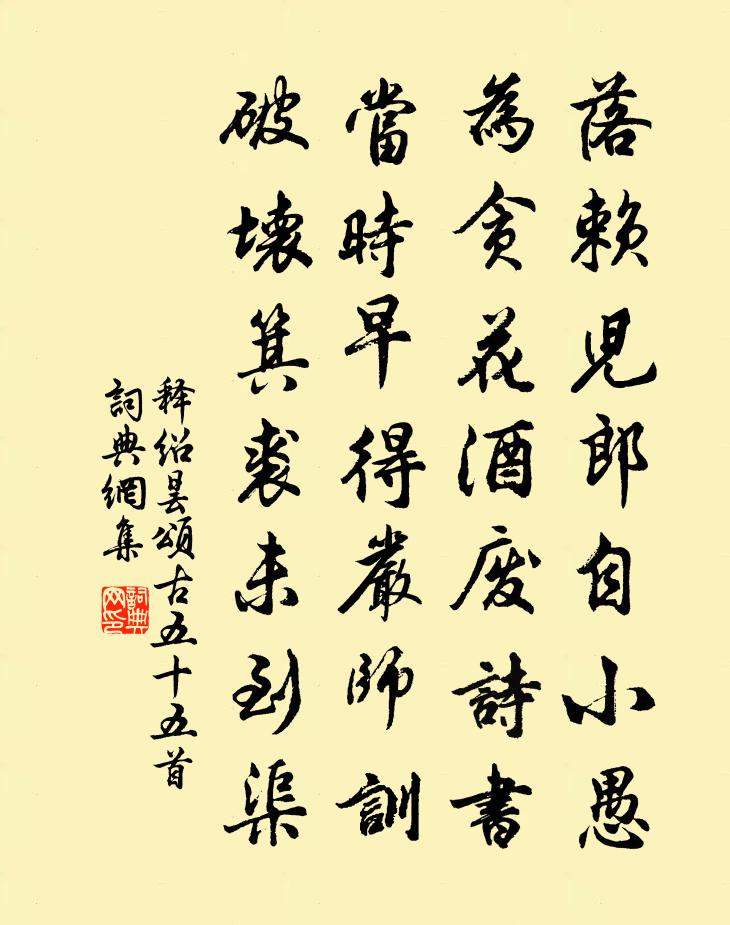 落賴兒郎自小愚
為貪花酒廢詩書
當時早得嚴師訓
破壞箕裘未到渠
释绍曇頌古五十五首
詞典網集
詞典
网印